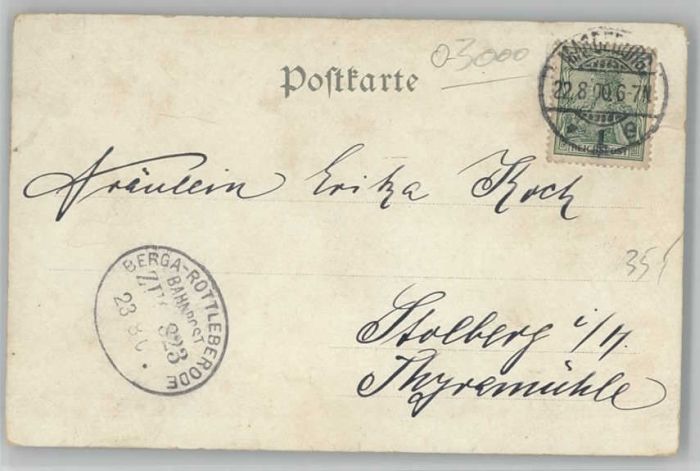 03000
Postkarte
MAGDEBURG
22.8.00.6-7N.
* 1 e
REICHSPOST
Fräulein Erika Koch
BERGA-ROTTLEBERODE
BAHNPOST
ZUG 923
23 8 0
35
Stolberg i/H.
Thyramühle